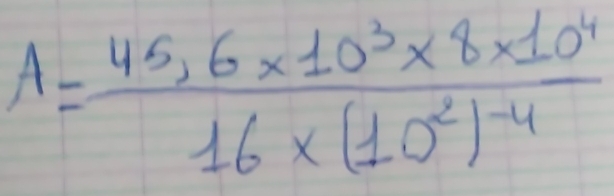 A = 45,6 × 10³ × 8 × 10⁴
16 × (10²)⁻⁴